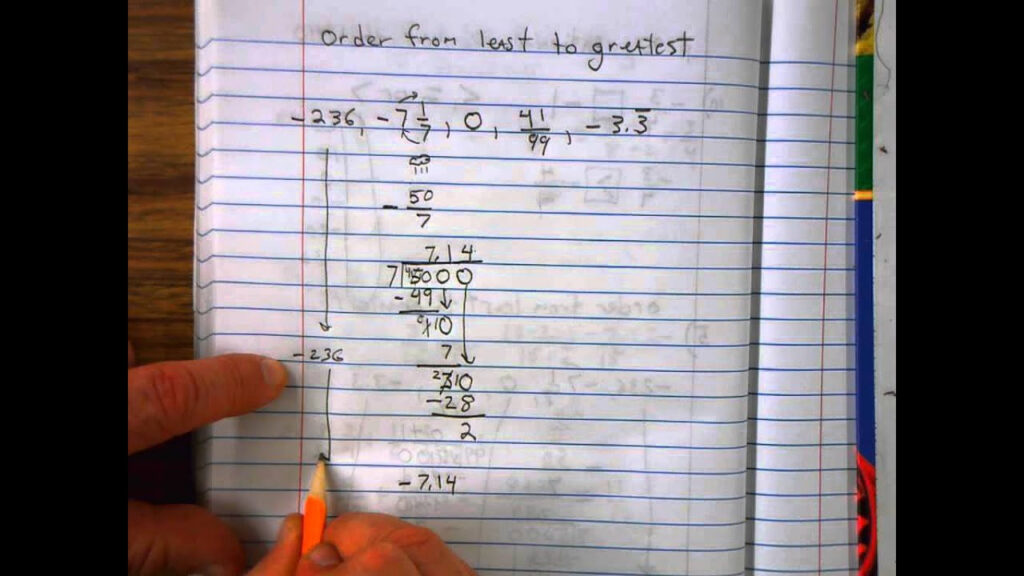 Order from least to greatest
-236, -7 1/7, 0, 41/99, -3.3̅
- 50/7
7.14
7 5000
-49
10
7
-236
310
-28
2
-7.14